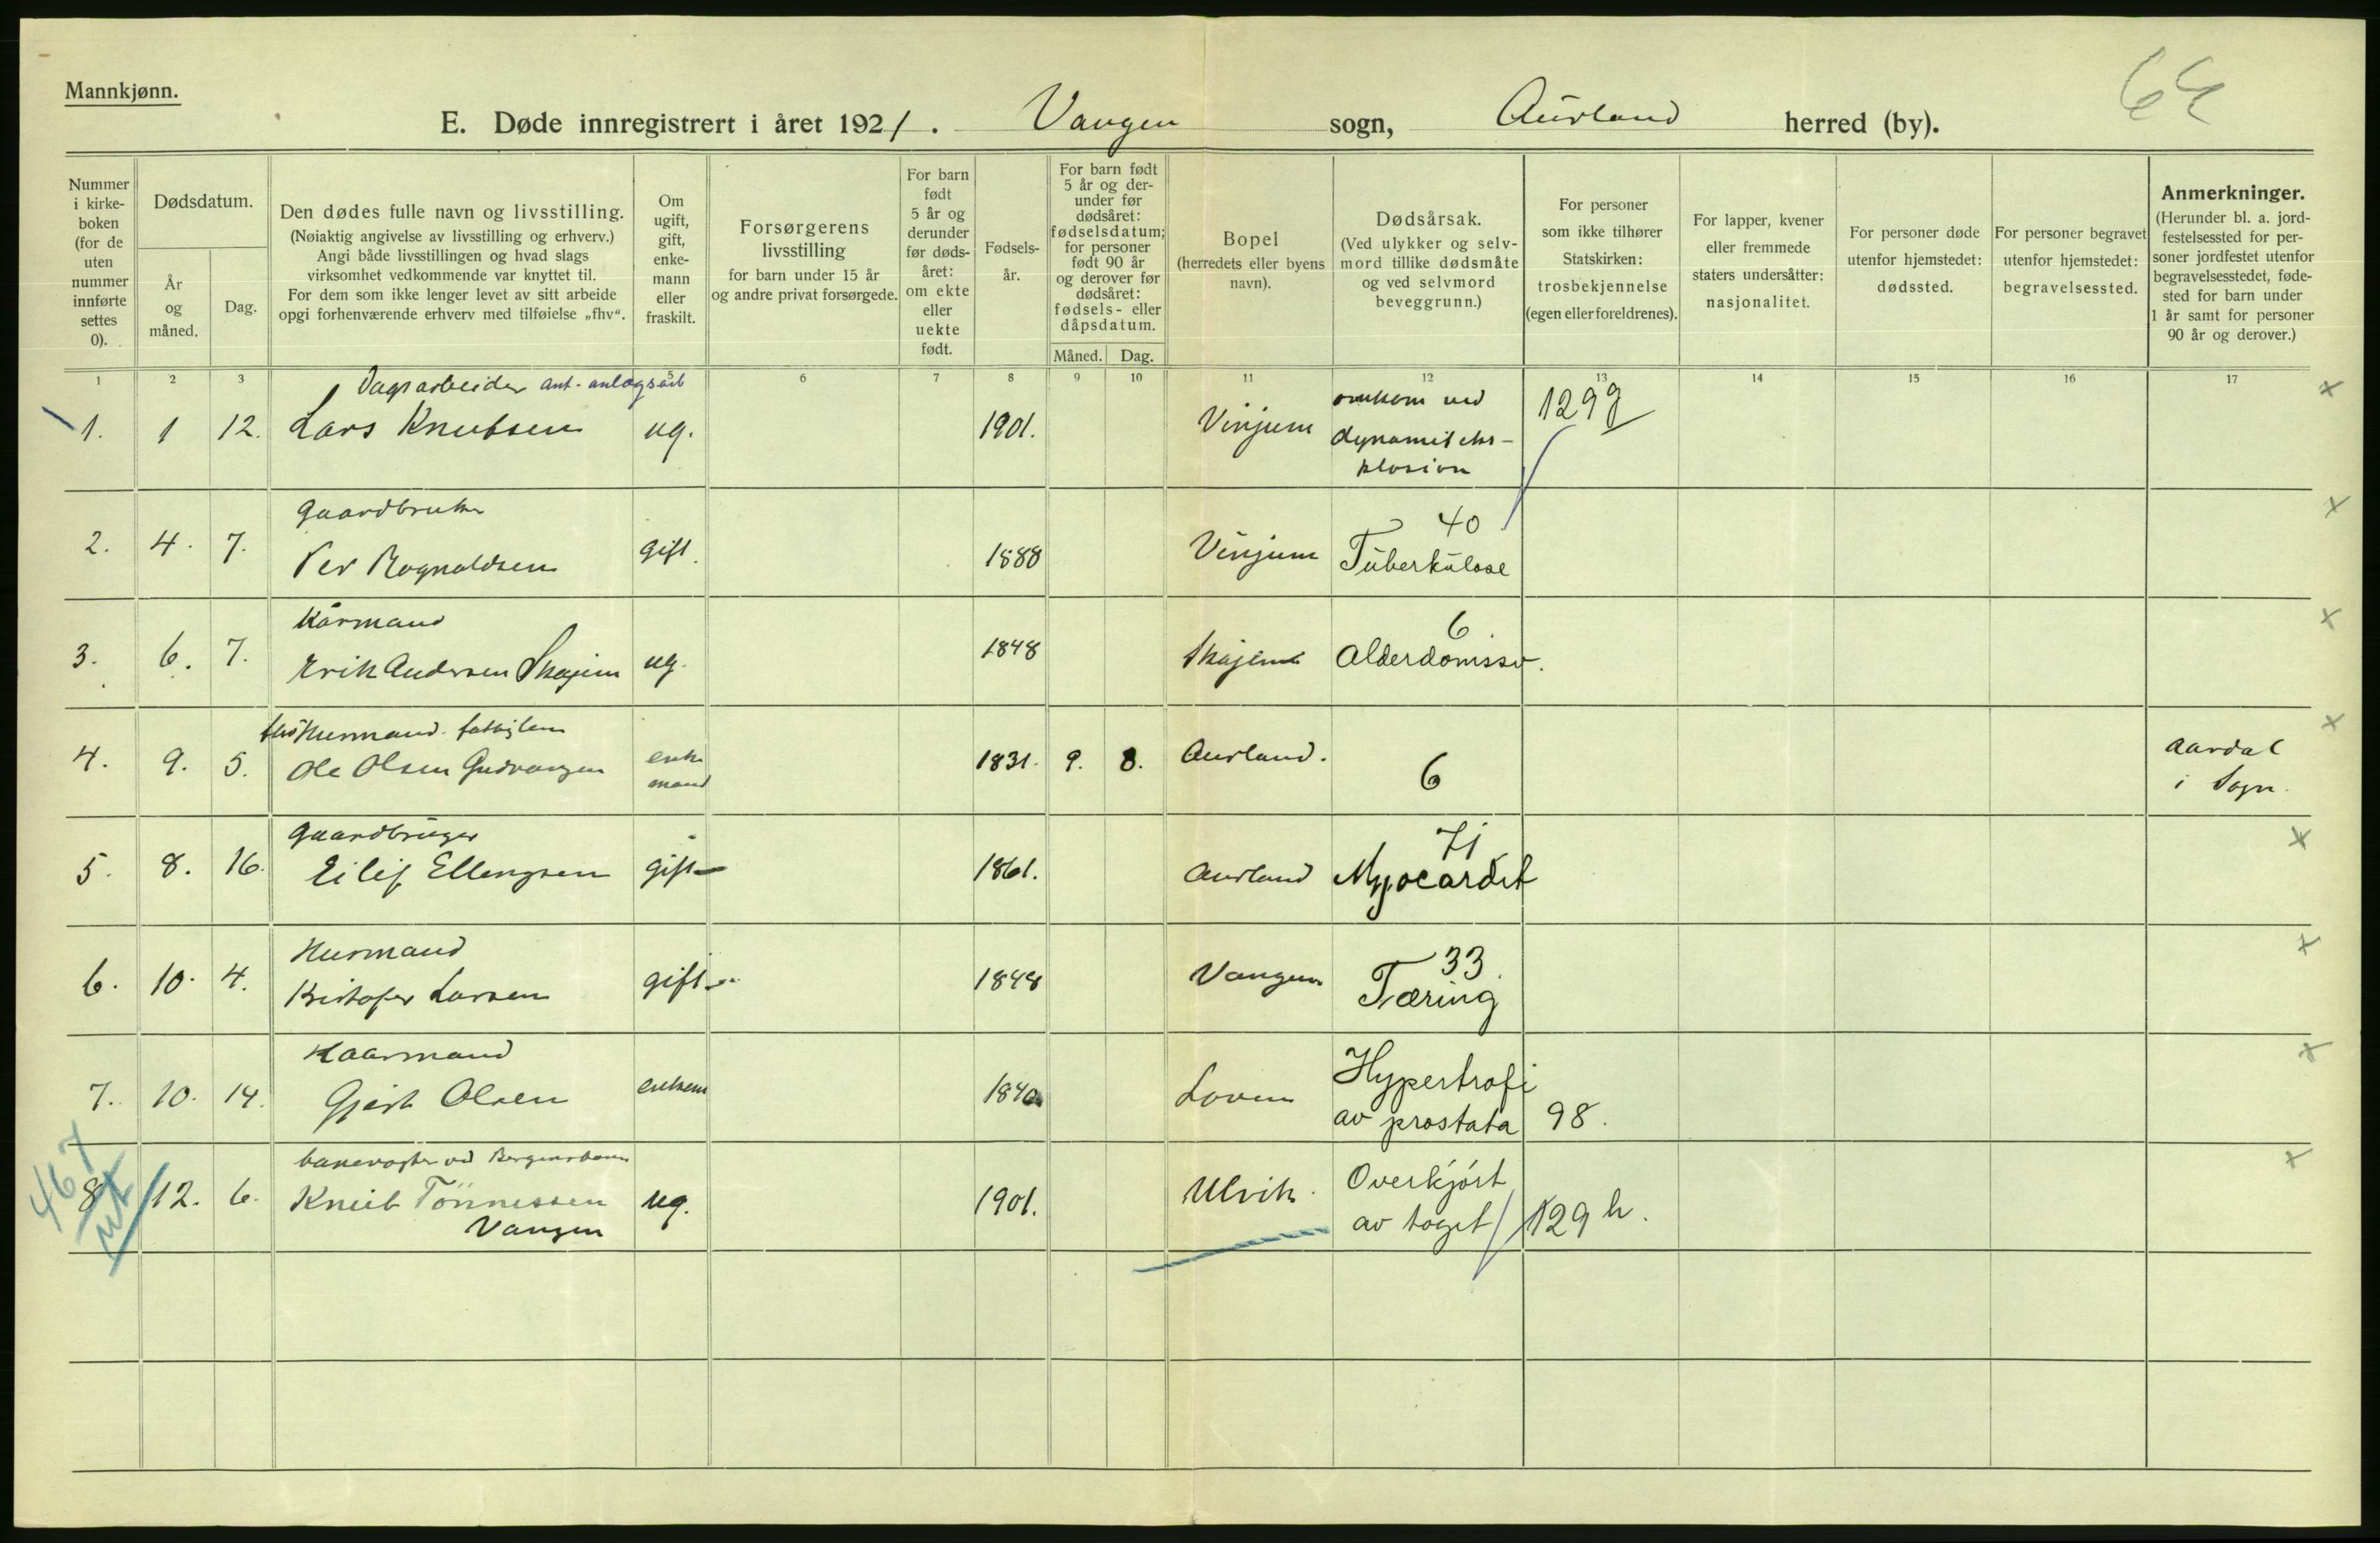 Mannkjønn.
64
E. Døde innregistrert i året 1921. Vangen sogn, Aurland herred (by).
Nummer i kirke- boken (for de uten nummer innførte settes 0).
Dødsdatum.
År og måned.
Dag.
Den dødes fulle navn og livsstilling.
(Nøiaktig angivelse av livsstilling og erhverv.)
Angi både livsstillingen og hvad slags
virksomhet vedkommende var knyttet til.
For dem som ikke lenger levet av sitt arbeide
opgi forhenværende erhverv med tilføielse „fhv“.
Om ugift, gift, enke- mann eller fraskilt.
Forsørgerens
livsstilling
for barn under 15 år
og andre privat forsørgede.
For barn født 5 år og derunder før døds- året: om ekte eller uekte født.
Fødsels- år.
For barn født 5 år og der- under før dødsåret: fødselsdatum; for personer født 90 år og derover før dødsåret: fødsels- eller dåpsdatum.
Måned. Dag.
Bopel
(herredets eller byens
navn).
Dødsårsak.
(Ved ulykker og selv-
mord tillike dødsmåte
og ved selvmord
beveggrunn.)
For personer
som ikke tilhører
Statskirken:
trosbekjennelse
(egen eller foreldrenes).
For lapper, kvener
eller fremmede
staters undersåtter:
nasjonalitet.
For personer døde
utenfor hjemstedet:
dødssted.
For personer begravet
utenfor hjemstedet:
begravelsessted.
Anmerkninger.
(Herunder bl. a. jord-
festelsessted for per-
soner jordfestet utenfor
begravelsesstedet, føde-
sted for barn under
1 år samt for personer
90 år og derover.)
1 2 3 5 6 7 8 9 10 11 12 13 14 15 16 17
Dagsarbeider ant. anlægsarb
1. 1 12. Lars Knutsen ug. 1901. Vinjum omkom ved
dynamiteks-
plosion
129 g
x
Gaardbruker
2. 4. 7. Per Ragnaldsen gift. 1888 Vinjum 40
Tuberkulose
x
Kårmand
3. 6. 7. Erik Andersen Skajem ug. 1848 Skajem 6
Alderdomssv.
x
fhv Husmand. fattiglem
4. 9. 5. Ole Olsen Gudvangen enke
mand 1831. 9. 8. Aurland. 6
Aardal
i Sogn.
x
Gaardbruger
5. 8. 16. Eilif Ellengsen gift 1861. Aurland 71
Myocardit
x
Husmand
6. 10. 4. Kristofer Larsen gift 1848 Vangen 33.
Tæring
x
Kaarmand
7. 10. 14. Gjest Olsen enkem 1840 Loven Hypertrofi
av prostata 98.
x
banevogter ved Bergensbanen
467
8 12. 6. Knut Tönnessen
Vangen
ug. 1901. Ulvik. Overkjört
av toget 129 h.
x